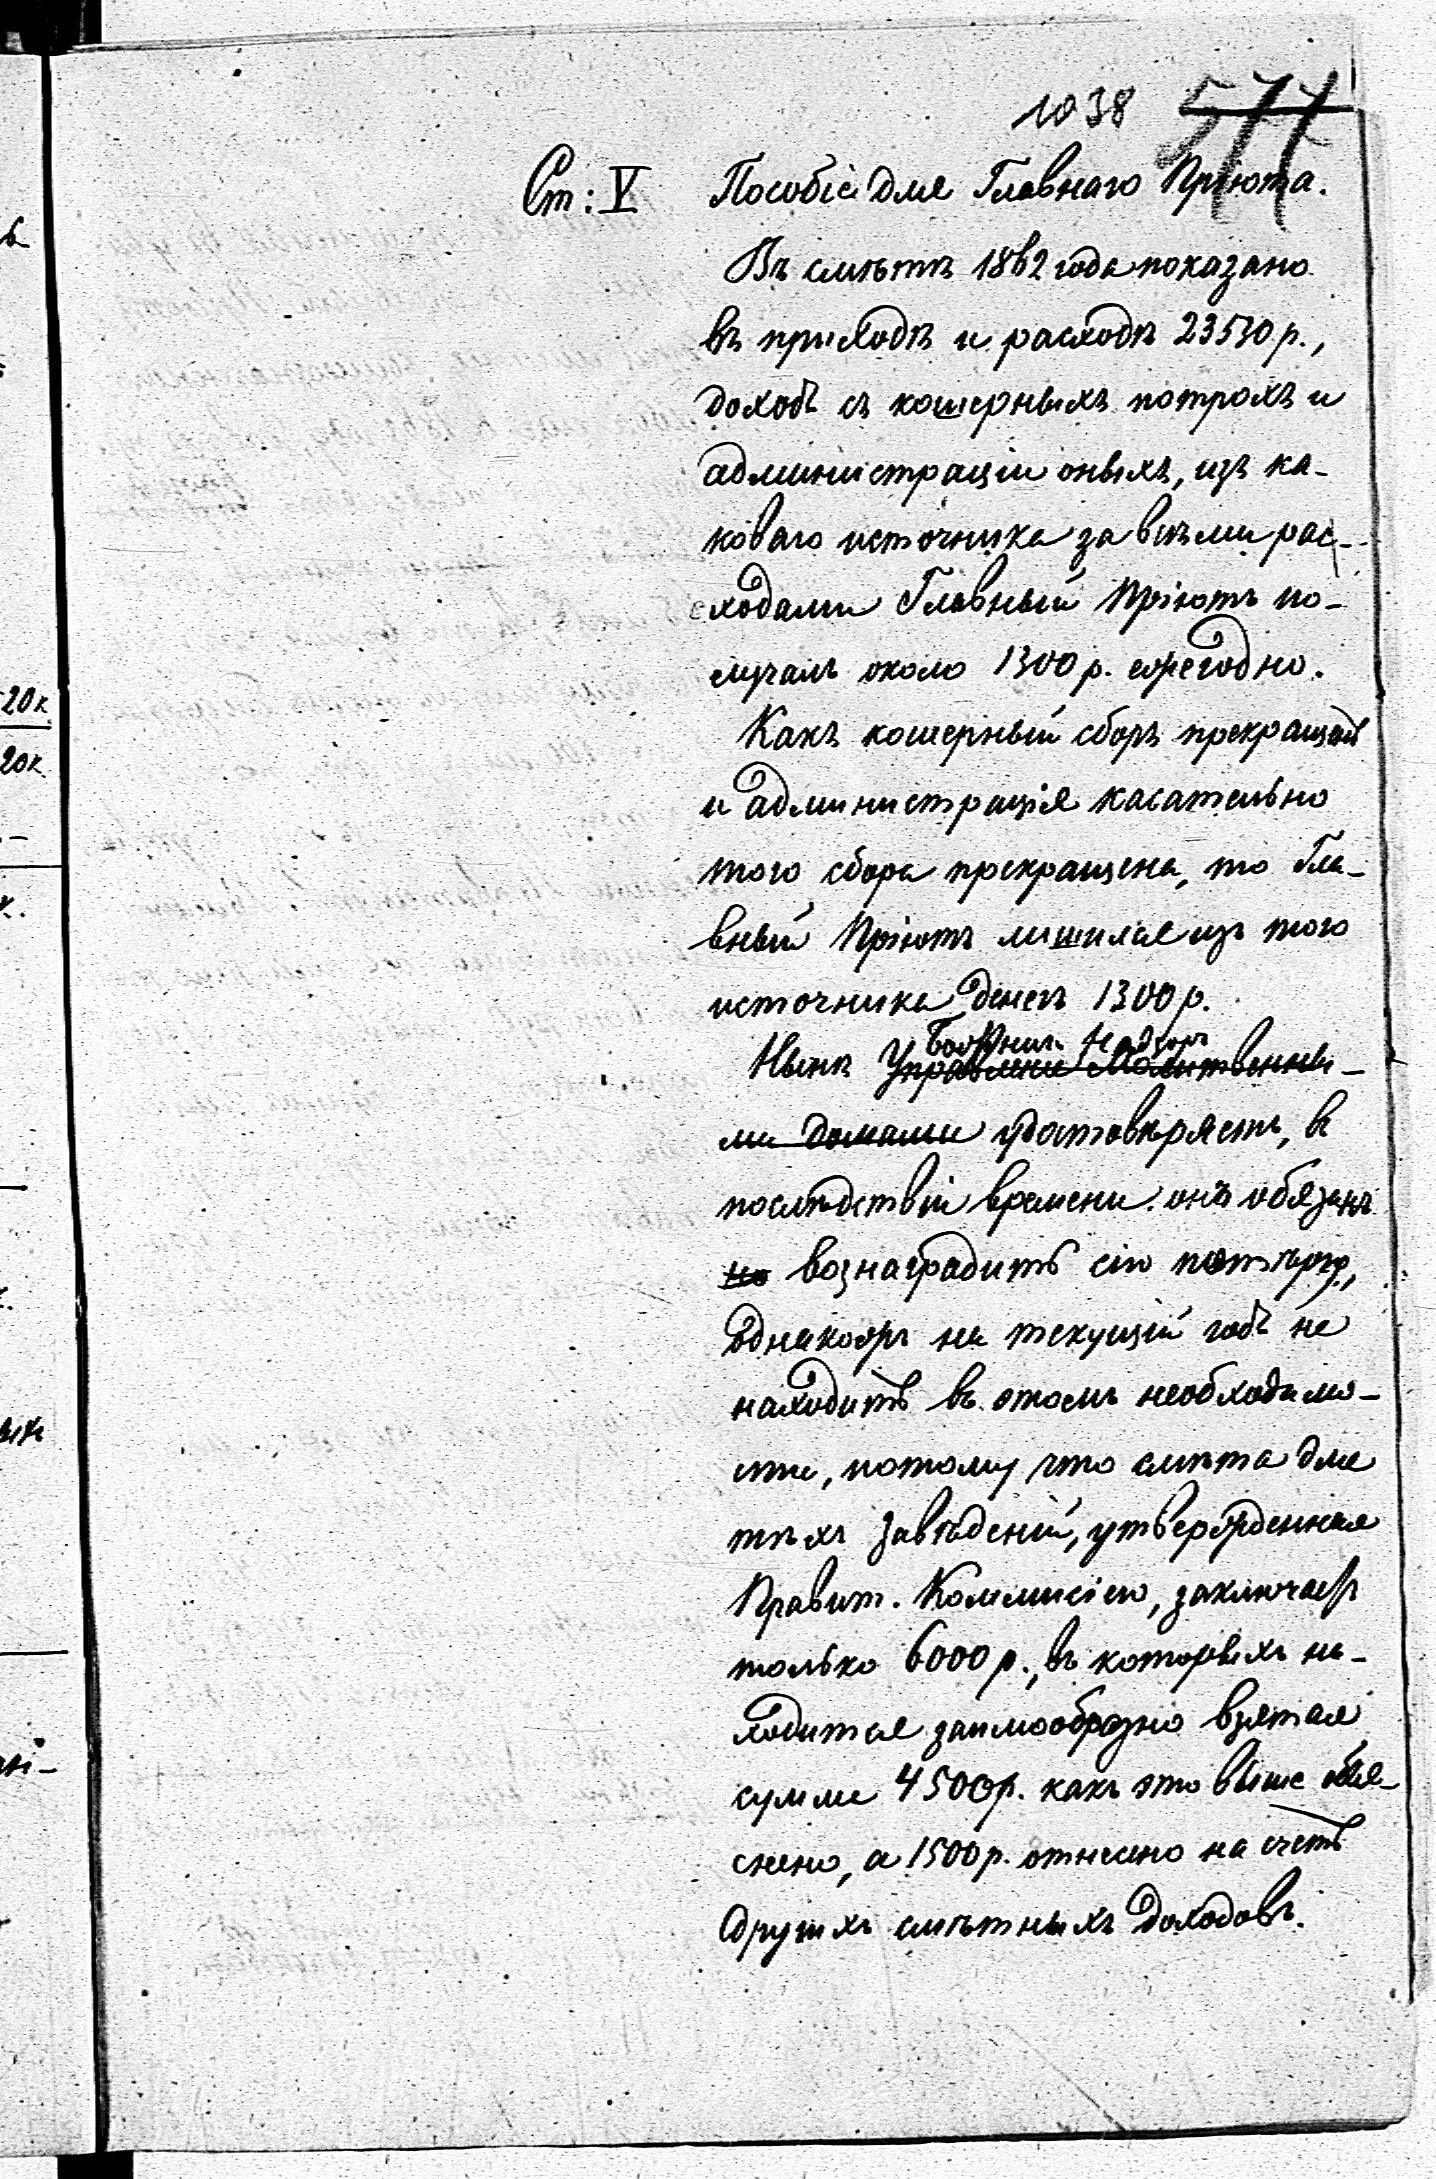 1038 577
Ст: V Пособіе для Главнаго Пріюта.
Въ смѣтѣ 1862 года показано
въ приходѣ и расходѣ 23530 р.,
доходъ съ кошерныхъ потрохъ и
администраціи оныхъ, изъ ка-
коваго источника за всѣми рас-
ходами Главный Пріютъ по-
лучалъ около 1300 р. ежегодно.
Какъ кошерный сборъ прекращенъ
и администрація касательно
того сбора прекращена, то Гла-
вный Пріютъ лишился изъ того
источника денегъ 1300 р.
Божничн. Надзоръ
Нынѣ Управленіе Молитвенны-
ми домами удостовѣряетъ, въ
послѣдствіи времени онъ обязанъ
но вознаградить сію потерю,
однакожъ на текущій годъ не
находитъ въ этомъ необходимо-
сти, потому что смѣта для
тѣхъ заведеній, утвержденная
Правит. Коммисіею, заключаетъ
только 6000 р., въ которыхъ на-
ходится заимообразно взятая
сумма 4500 р. какъ это выше объя-
снено, а 1500 р. отнесено на счетъ
другихъ смѣтныхъ доходовъ.
20 к.
20 к.